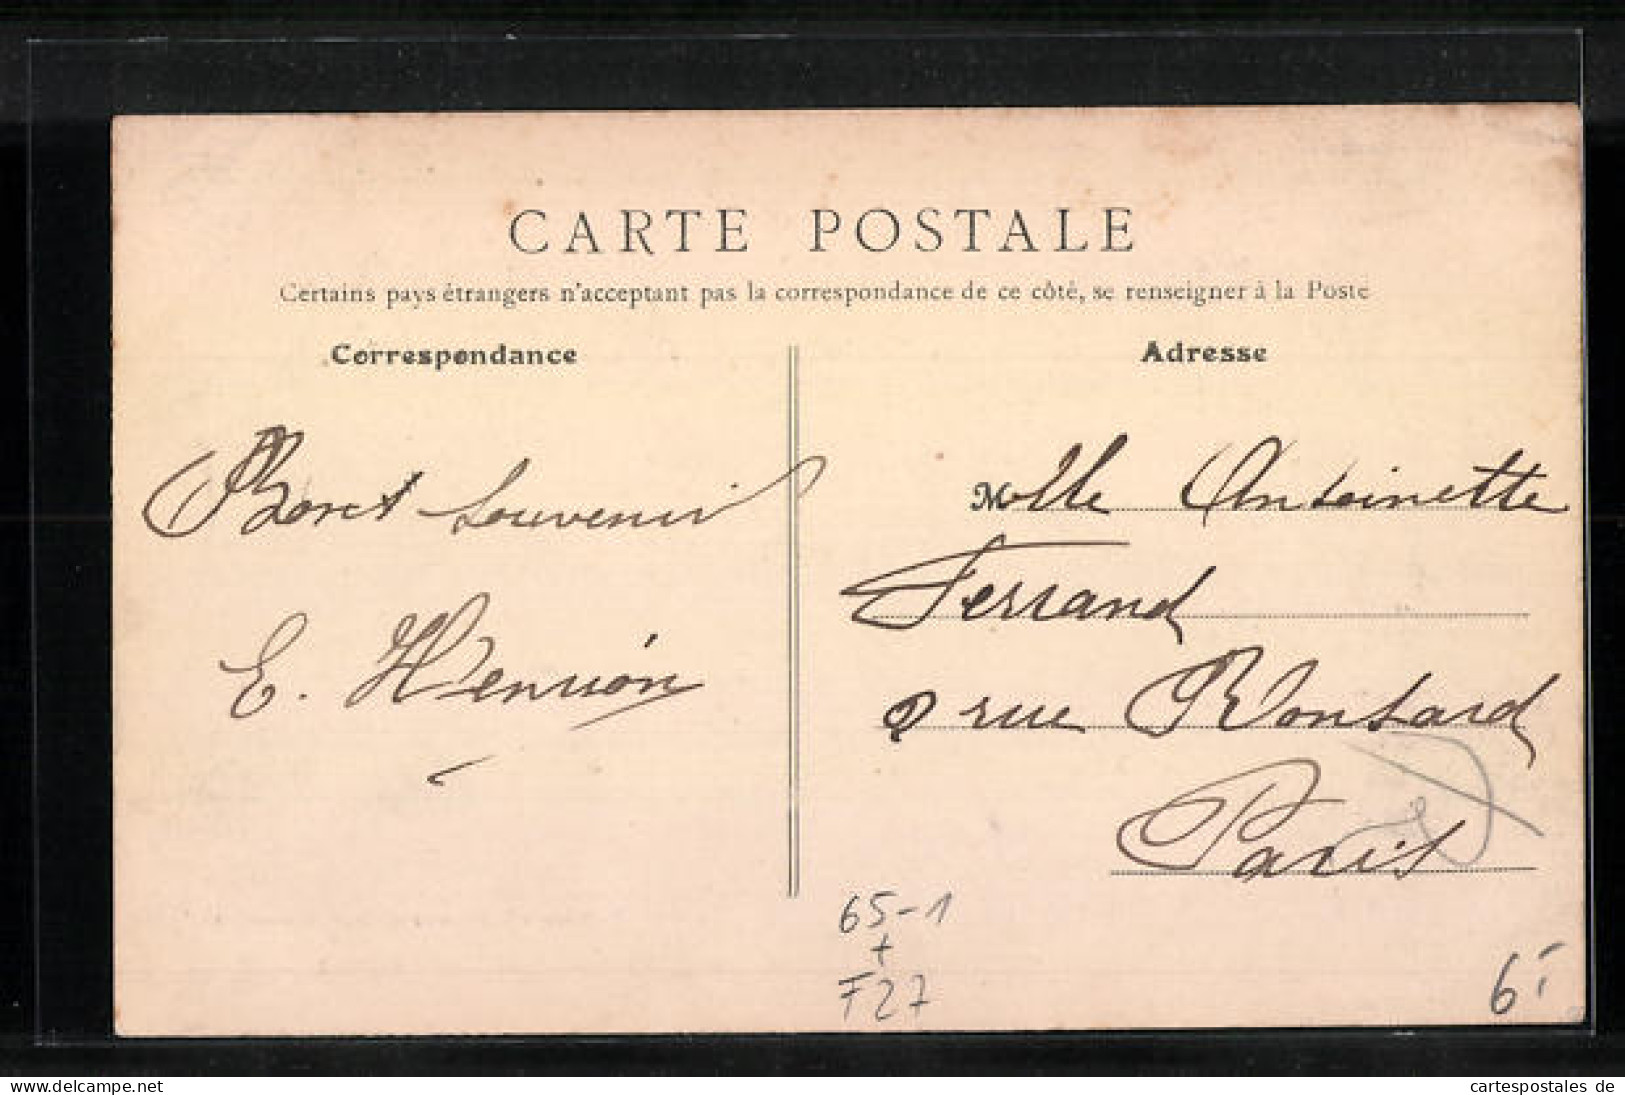 CARTE POSTALE
Certains pays étrangers n'acceptant pas la correspondance de ce côté, se renseigner à la Poste
Correspondance
Adresse
souvenir
E. Henrion
Mlle Antoinette
Ferrand
rue Ronsard
Paris
65-1
+
F27
delcampe.net
cartespostales de